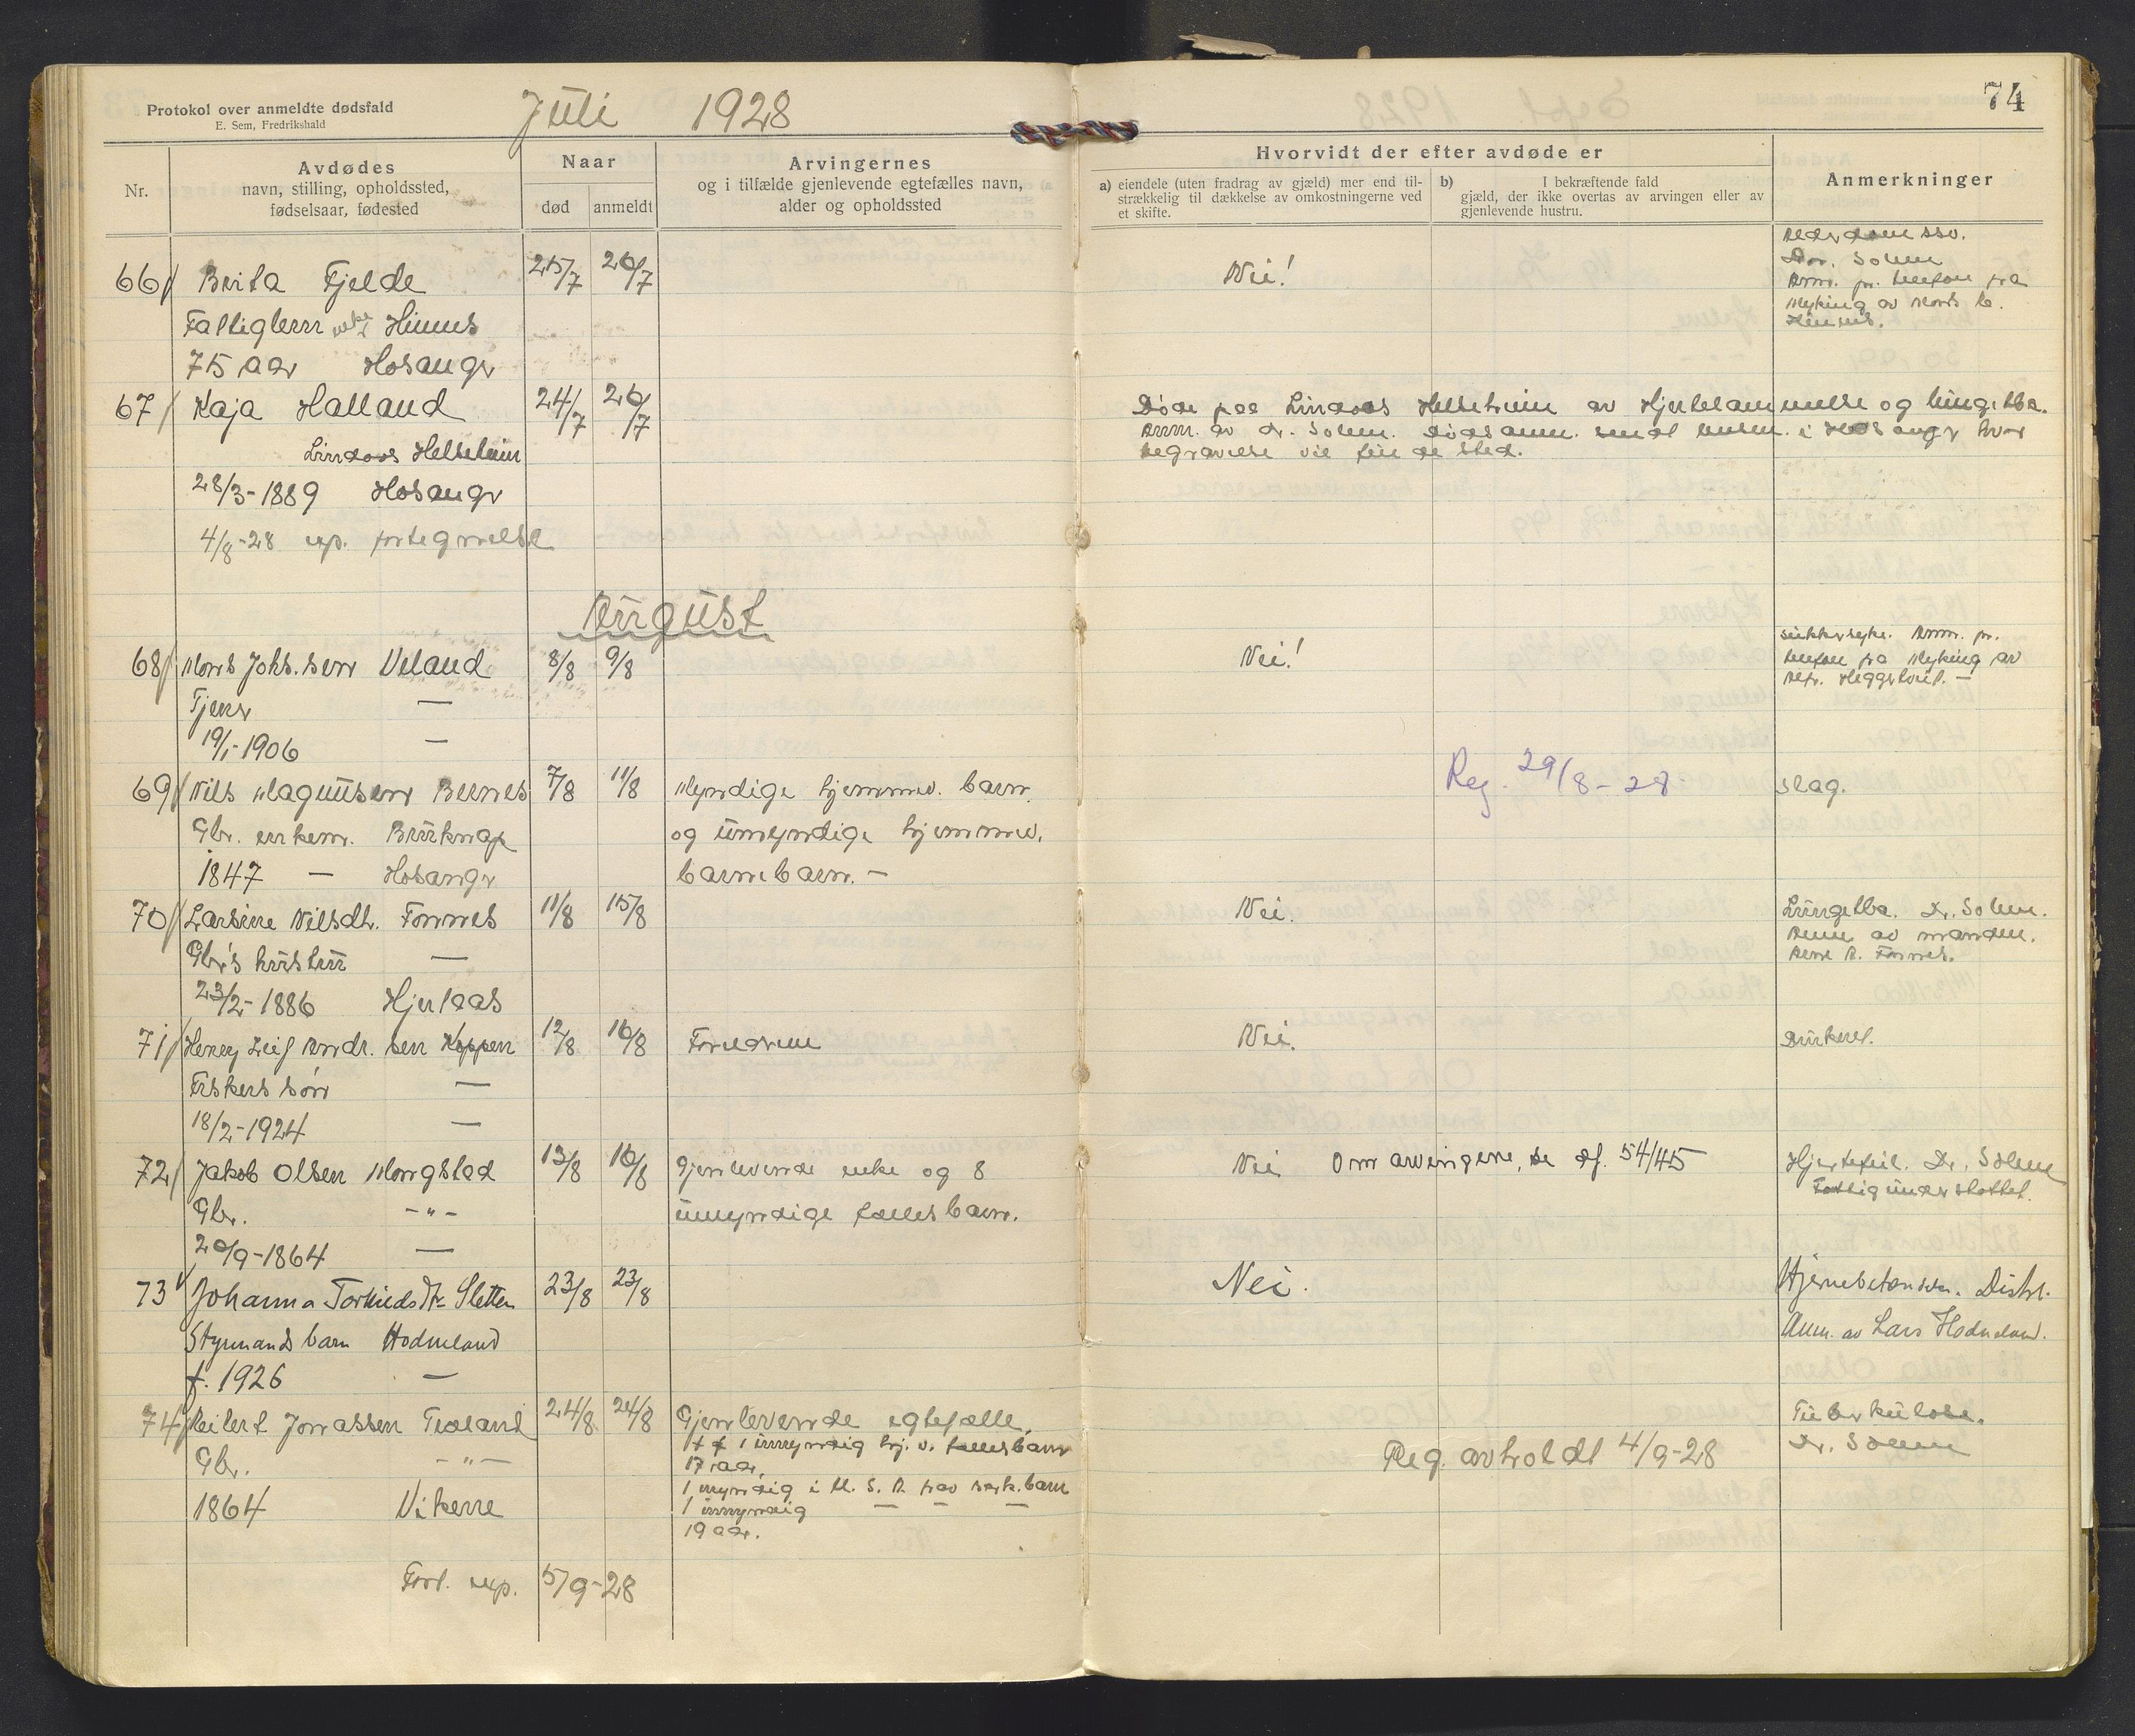 Protokol over anmeldte dødsfald
E. Sem, Fredrikshald
Juli 1928
74
Nr.
Avdødes
navn, stilling, opholdssted,
fødselsaar, fødested
Naar
død
anmeldt
Arvingernes
og i tilfælde gjenlevende egtefælles navn,
alder og opholdssted
Hvorvidt der efter avdøde er
a) eiendele (uten fradrag av gjæld) mer end til-
strækkelig til dækkelse av omkostningerne ved
et skifte.
b) I bekræftende fald
gjæld, der ikke overtas av arvingen eller av
gjenlevende hustru.
Anmerkninger
66/ Brita Fjelde 25/7 26/7 Nei! Alderdomssv.
Dr. Solem
Anm. pr. telefon fra
Myking av
Fattiglem Hinnes
75 aar Hosangr
67/ Kaja Halland 24/7 26/7 Døde paa Lindaas Helseheim av Hjertelammelse og lungetba.
Lindaas Helseheim Anm. av dr. Solem. Dødsanm. sendt lensm. i Hosangr hvor
begravelse vil finde sted.
28/3-1889 Hosangr
4/8-28 exp. fortegnelse
August
68/ Mons Johs.sen Veland 8/8 9/8 Nei! Sukkersyke. Anm. pr.
telefon fra Myking av
Tjener —
19/1-1906 —
69/ Nils Magnussen Beines 7/8 11/8 Myndige hjemmev. barn Reg. 29/8-28 Slag.
Gbr. enkem. og umyndige hjemmev.
1847 — Hosangr barnebarn. —
70/ Larsine Nilsdt. Fonnes 11/8 15/8 Nei. Lungetba. Dr. Solem.
Anm av manden.
Arne A. Fonnes.
Gbr's hustru —
23/2-1886 Hjertaas
71/ Henry Leif Andr.sen Keppen 12/8 16/8 Forældrene Nei. Druknet.
Fiskers søn —
18/2-1924 —
72/ Jakob Olsen Mongstad 13/8 16/8 Gjenlevende enke og 8 Nei Om arvingene, se df. 54/45 Hjertefeil. Dr. Solem
Fattigunderstøttet.
Gbr. -"- umyndige fællesbarn.
20/9-1864 —
73 Johanna Torkilds dtr Sletten 23/8 23/8 Nei. Hjernebetændelse. Distrl.
Styrmands barn Hodneland Anm. av Lars Hodneland.
f. 1926 —
74/ Reilert Jonassen Tveland 24/8 24/8 Gjenlevende egtefælle. Reg. avholdt 4/9-28 Tuberkulose.
Dr. Solem
Gbr. -"- 1 umyndig hj. v. fællesbarn
17 aar.
1864 Vikene 1 myndig i U. S. A. særk.barn
1 umyndig — — —
19 aar.
Fort. exp. 5/9-28